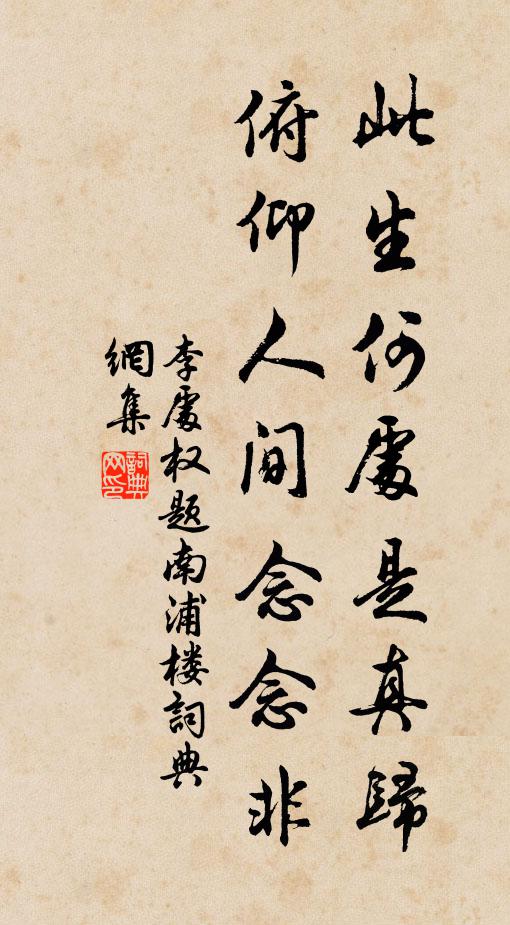 此生何處是真歸
俯仰人间念念非
李處权题南浦楼詞典
網集
詞典
网印